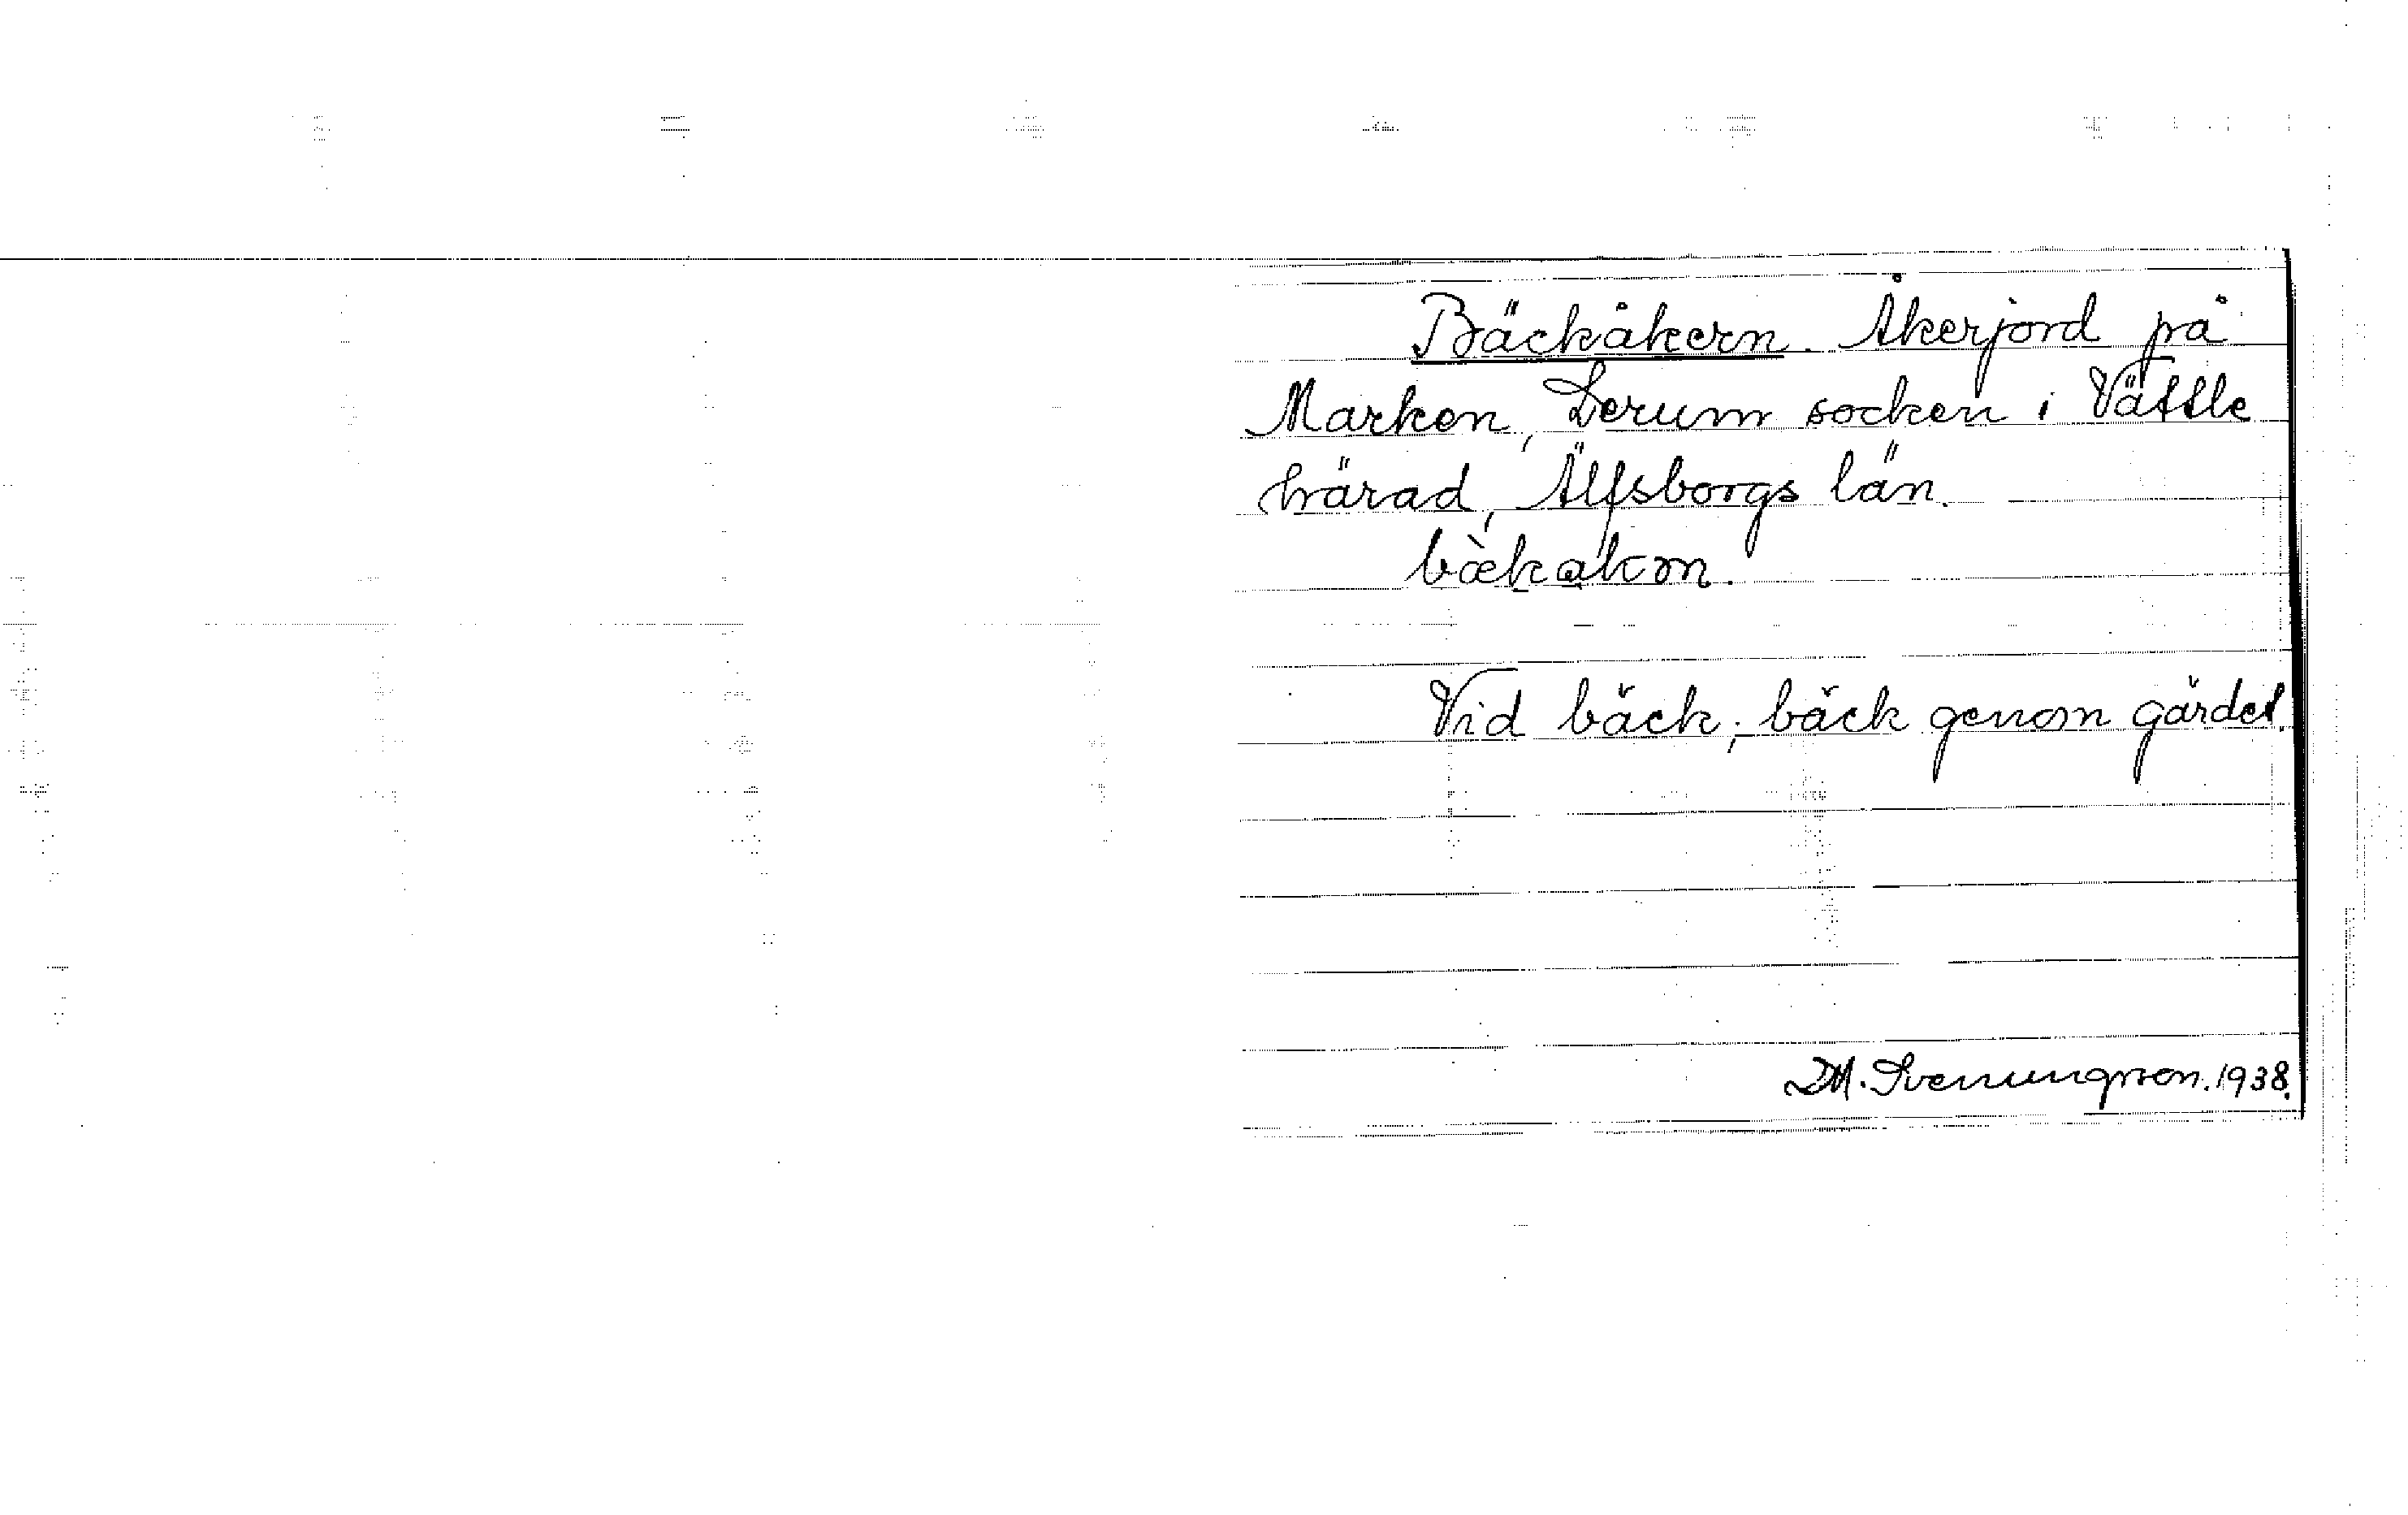 Bäckåkern. Åkerjord på
Marken, Lerum socken i Vättle
härad, Älfsborgs län.
bækakɷn.
Vid bäck; bäck genom gärdet.
DM. Svenungsson. 1938.